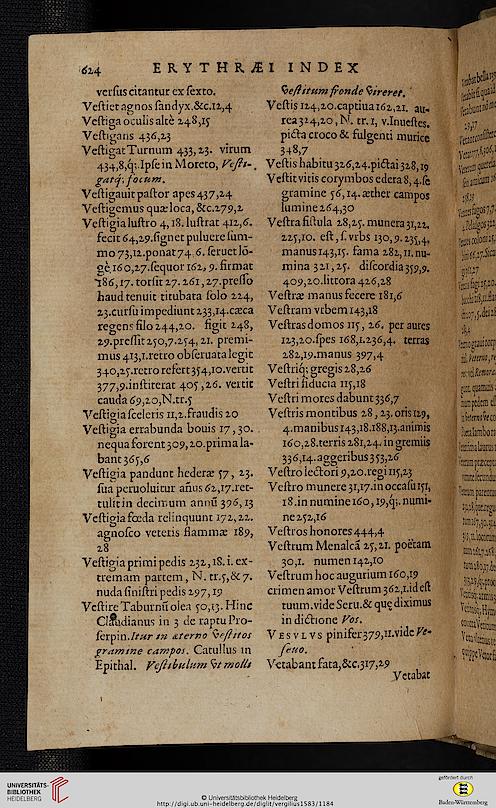 624 ERYTHRÆI INDEX
versus citantur ex sexto.
Vestiet agnos sandyx.&c.12,4
Vestiga oculis altè 248,15
Vestigans 436,23
Vestigat Turnum 433,23. virum
434,8,q;.Ipse in Moreto, Vesti-
gatq; focum.
Vestigauit pastor apes 437,24
Vestigemus quæ loca, &c.279,2
Vestigia lustro 4,18.lustrat 412,6.
fecit 64,29.signet puluere sum-
mo 73,12.ponat 74.6. seruet lō-
gè,160,27.sequor 162,9. firmat
186,17. torsit 27.261,27.presso
haud tenuit titubata solo 224,
23.cursu impediunt 233,14.cæca
regens filo 244,20. figit 248,
29.pressit 250,7.254,21. premi-
mus 413,1.retro obseruata legit
340,25.retro refert 354,10.vertit
377,9.institerat 405,26. vertit
cauda 69,20,N.tr.5
Vestigia sceleris 11,2.fraudis 20
Vestigia errabunda bouis 17,30.
nequa forent 309,20.prima la-
bant 365,6
Vestigia pandunt hederæ 57, 23.
sua peruoluitur añus 62,17.ret-
tulit in decimum annū 376,13
Vestigia fœda relinquunt 172,22.
agnosco veteris flammæ 189,
28
Vestigia primi pedis 232,18.i. ex-
tremam partem, N.tr.5,& 7.
nuda sinistri pedis 297,19
Vestire Taburnū olea 50,13. Hinc
Claudianus in 3 de raptu Pro-
serpin.Itur in æterno vestitos
gramine campos. Catullus in
Epithal. Vestibulum vt molli
vestitum fronde vireret.
Vestis 124,20.captiua 162,21. au-
rea 324,20, N. tr.1, v.Inuestes.
picta croco & fulgenti murice
348,7
Vestis habitu 326,24.pictai 328,19
Vestit vitis corymbos edera 8,4.se
gramine 56,14.æther campos
lumine 264,30
Vestra fistula 28,25. munera 31,22.
225,10. est, s.vrbs 130,9.235,4.
manus 143,15. fama 282,11.nu-
mina 321,25. discordia 359,9.
409,20.littora 426,28
Vestræ manus fecere 181,6
Vestram vrbem 143,18
Vestras domos 115, 26. per aures
123,20.spes 168,1.236,4. terras
282,19.manus 397,4
Vestriq; gregis 28,26
Vestri fiducia 115,18
Vestri mores dabunt 336,7
Vestris montibus 28, 23.oris 129,
4.manibus 143,18.188,13.animis
160,28.terris 281,24.in gremiis
336,14.aggeribus 353,26
Vestro lectori 9,20.regi 115,23
Vestro munere 31,17.in occasu 151,
18.in numine 160,19,q;.numi-
ne 252,16
Vestros honores 444,4
Vestrum Menalcā 25,21. poëtam
30,1. numen 142,10
Vestrum hoc augurium 160,19
crimen amor Vestrum 362,1.id est
tuum.vide Seru.& quę diximus
in dictione Vos.
VESVLVS pinifer 379,11.vide Ve-
seuo.
Vetabant fata,&c.317,29
Vetabat
UNIVERSITÄTS-
BIBLIOTHEK
HEIDELBERG
© Universitätsbibliothek Heidelberg
http://digi.ub.uni-heidelberg.de/diglit/vergilius1583/1184
gefördert durch
Baden-Württemberg